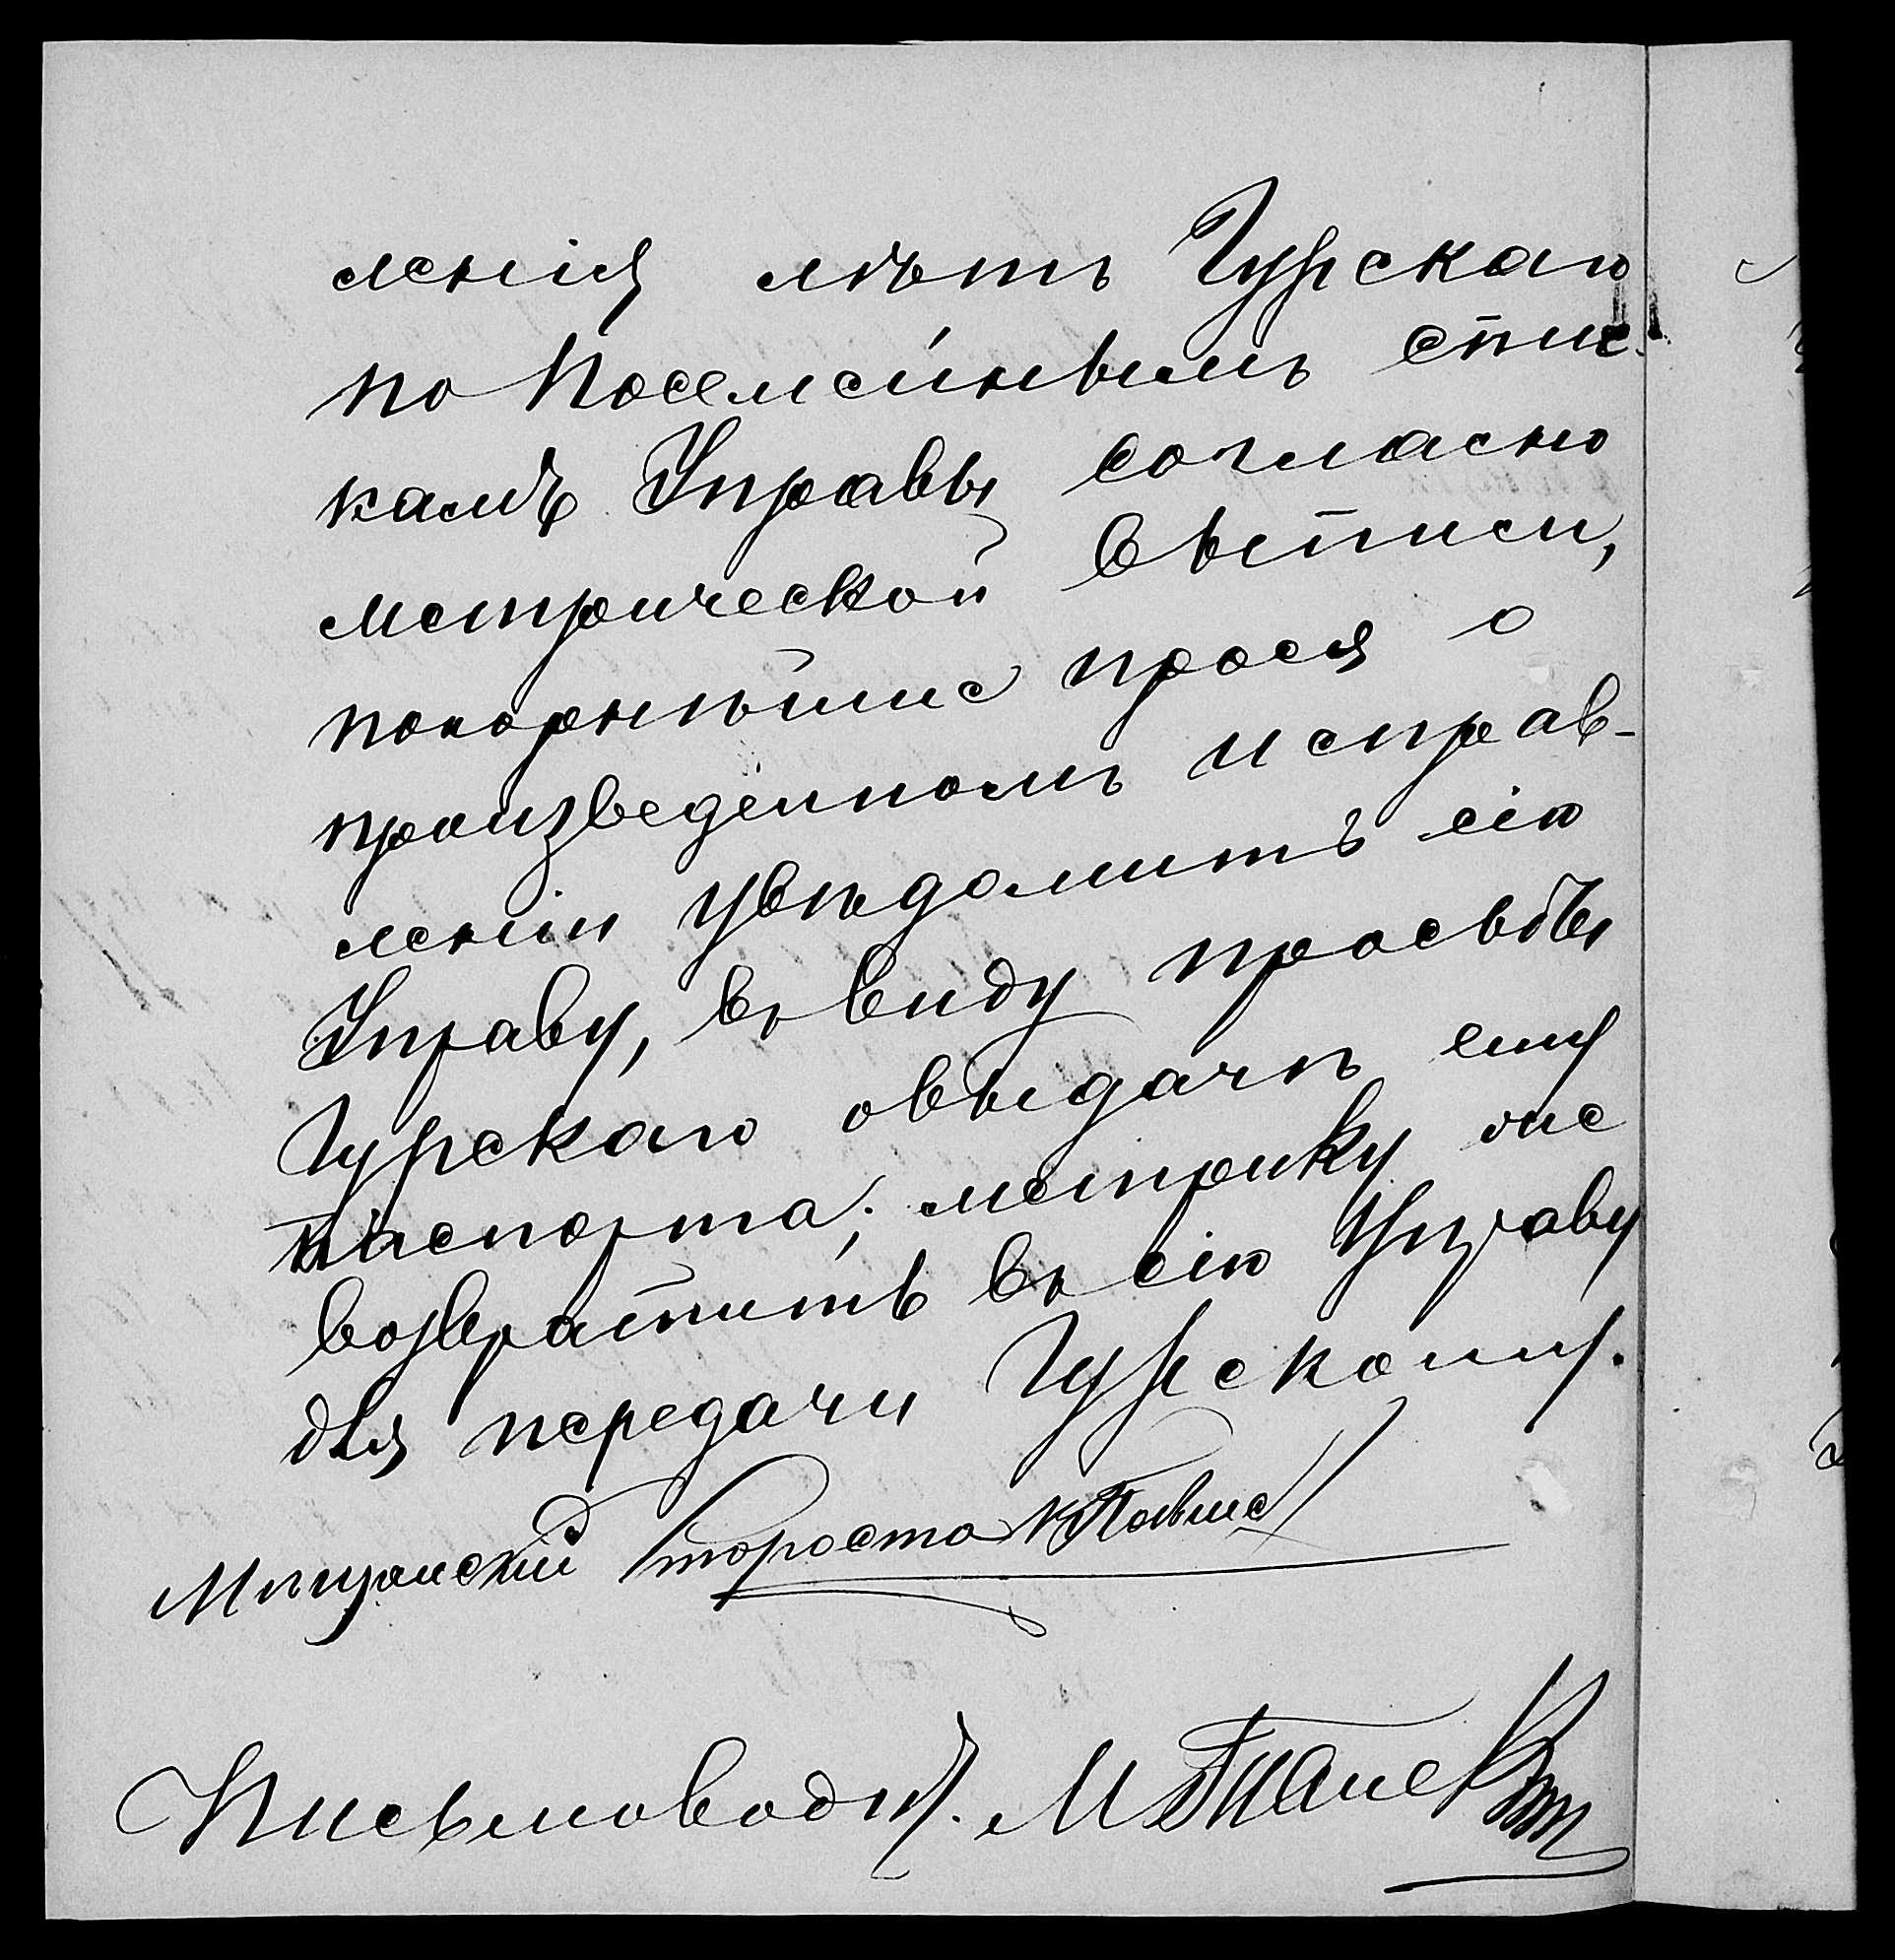 ленія лѣтъ Гурскаго
по посемейнымъ спис-
камъ Управы согласно
метрической выписи,
покорнѣйше прося о
произведенномъ исправ-
леніи увѣдомить сію
Управу, въ виду просьбы
Гурскаго о выдачѣ ему
паспорта; метрику же
возвратить въ сію Управу
для передачи Гурскому.
Мѣщанскій Староста
Письмоводит.